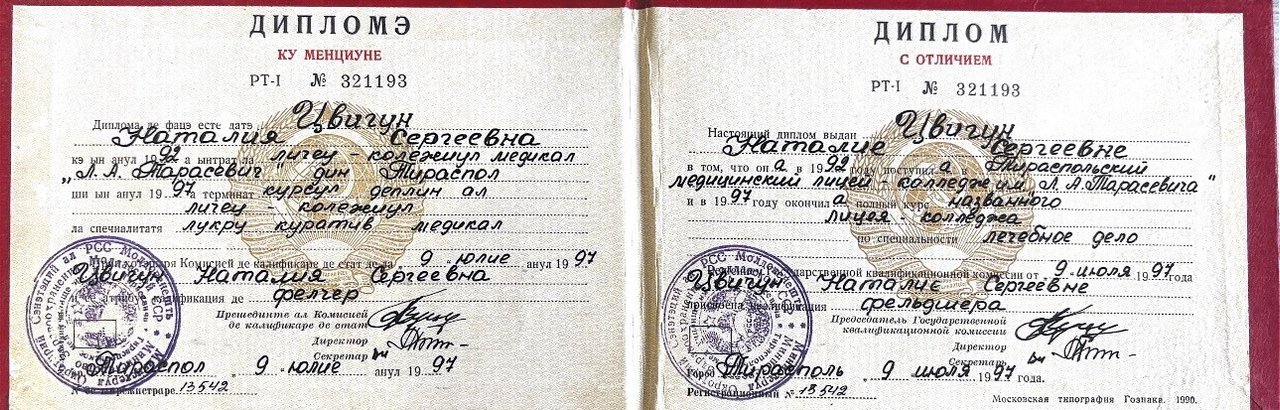 ДИПЛОМЭ
КУ МЕНЦИУНЕ
РТ-I № 321193
Диплома де фацэ есте датэ Цвигун
Наталия Сергеевна
кэ ын анул 1992 а ынтрат ла личеу - колежиул медикал
"Л. А. Тарасевич" дин Тираспол
ши ын анул 1997 а терминат курсул деплин ал
личеу колежиул
ла спечиалитатя лукру куратив медикал
Комисией де калификаре де стат де ла 9 юлие анул 1997
Цвигун Наталия Сергеевна
калификация де фелчер
Прешединте ал Комисией
де калификаре де стат
Директор
Секретар
Тираспол 9 юлие анул 1997
13542
ДИПЛОМ
С ОТЛИЧИЕМ
РТ-I № 321193
Настоящий диплом выдан Цвигун
Наталие Сергеевне
в том, что он а в 1992 году поступил а в Тираспольский
медицинский лицей - колледж им. Л. А. Тарасевича"
и в 1997 году окончил а полный курс названного
лицея - колледжа
по специальности лечебное дело
Государственной квалификационной комиссии от 9 июля 1997 года
Цвигун Наталие Сергеевне
присвоена квалификация фельдшера
Председатель Государственной
квалификационной комиссии
Директор
Секретарь
Город Тирасполь 9 июля 1997 года.
Регистрационный № 13542
Московская типография Гознака. 1990.